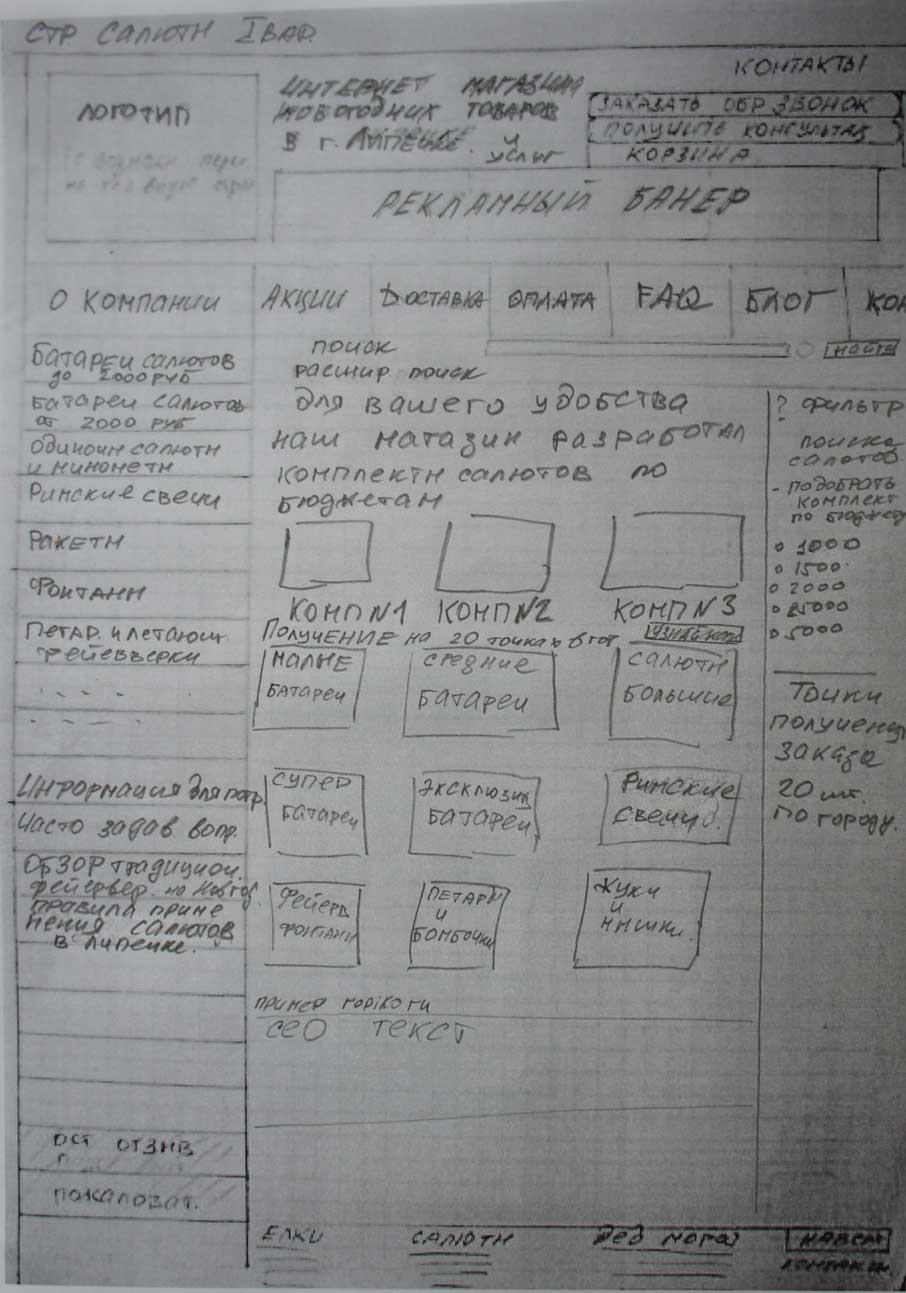 СТР САЛЮТЫ I ВАР.
КОНТАКТЫ
ЛОГОТИП
ИНТЕРНЕТ МАГАЗИН
НОВОГОДНИХ ТОВАРОВ
В г. ЛИПЕЦКЕ. и
услуг
ЗАКАЗАТЬ ОБР ЗВОНОК
ПОЛУЧИТЬ КОНСУЛЬТАЦ
КОРЗИНА
РЕКЛАМНЫЙ БАНЕР
О КОМПАНИИ
АКЦИИ
ДОСТАВКА
ОПЛАТА
FAQ
БЛОГ
КОН
ПОИСК
НАЙТИ
РАСШИР ПОИСК
БАТАРЕИ САЛЮТОВ
до 2000 РУБ
БАТАРЕИ САЛЮТОВ
от 2000 РУБ
Одиночн салюты
и минометы
Римские свечи
РАКЕТЫ
Фонтаны
ПЕТАР. и летающ.
фейерверки
Информация для потр.
Часто задав. вопр.
ОБЗОР традицион.
фейервер. на Новгод.
правила приме
нения салютов
в Липецке.
ост отзыв
пожаловат.
для вашего удобства
наш магазин разработал
комплекты салютов по
бюджетам
КОМП N1 КОМП N2 КОМП N3
Получение на 20 точках в гор
МАЛЫЕ
БАТАРЕИ
СРЕДНИЕ
БАТАРЕИ
САЛЮТЫ
БОЛЬШИЕ
СУПЕР
БАТАРЕИ
ЭКСКЛЮЗИВ
БАТАРЕИ
Римские
свечи
ФЕЙЕРВ
ФОНТАНЫ
ПЕТАРДЫ
и
БОМБОЧКИ
Жуки
и
мышки.
СЕО ТЕКСТ
? ФИЛЬТР
поиска
салютов.
- ПОДОБРАТЬ
КОМПЛЕКТ
по бюджету
1000
1500
2000
5000
Точки
получения
заказа
20 шт.
по городу.
ЕЛКИ
САЛЮТЫ
Дед мороз
НАВЕРХ
контакты